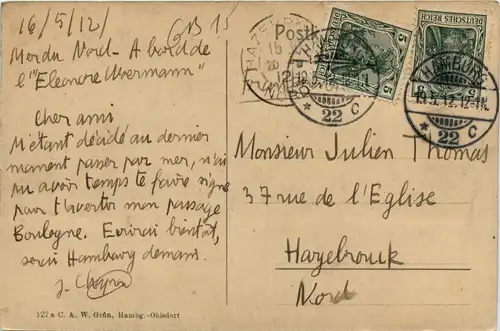 16/5/12/
GB 15
Mer du Nord - A bord de
l'"Eleonore Woermann"
Cher ami
M'étant décidé au dernier
moment passer par mer, n'ai
pu avoir temps te faire signe
pour t'avertir mon passage
Boulogne. Ecrirai bientôt,
serai Hambourg demain.
J.
127 a C. A. W. Grün, Hambg.-Ohlsdorf
Postk
5 5
DEUTSCHES REICH
HAMBURG
12-1
* 22 C
HAMBURG
12
* 22 C
Monsieur Julien Thomas
37 rue de l'Eglise
Hazebrouck
Nord